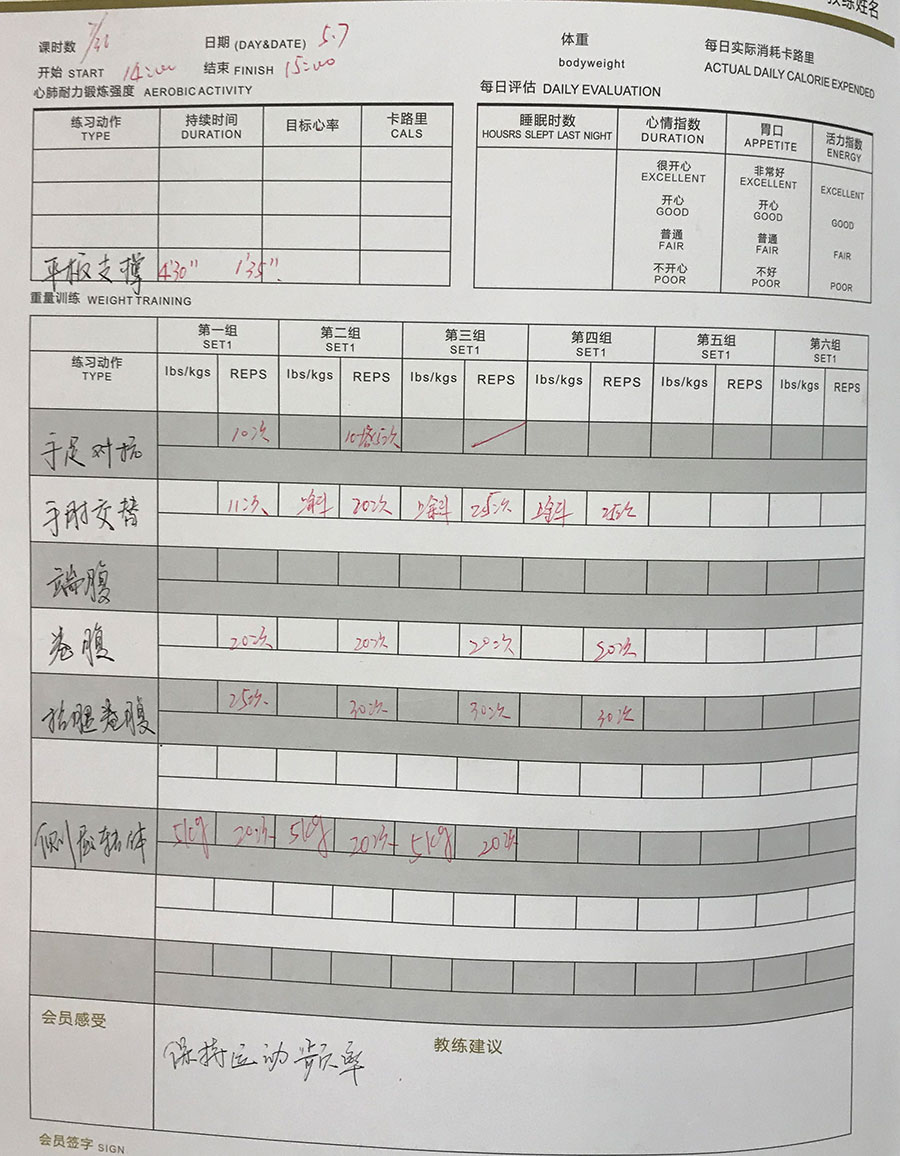 教练姓名
课时数 7/36 日期 (DAY&DATE) 5.7 体重 每日实际消耗卡路里
开始 START 14:00 结束 FINISH 15:00 bodyweight ACTUAL DAILY CALORIE EXPENDED
心肺耐力锻炼强度 AEROBIC ACTIVITY 每日评估 DAILY EVALUATION
练习动作 持续时间 目标心率 卡路里
TYPE DURATION CALS
睡眠时数 心情指数 胃口 活力指数
HOUSRS SLEPT LAST NIGHT DURATION APPETITE ENERGY
很开心 非常好
EXCELLENT EXCELLENT EXCELLENT
开心 开心
GOOD GOOD GOOD
普通 普通
FAIR FAIR FAIR
不开心 不好
POOR POOR POOR
平板支撑 4'30" 1'35"
重量训练 WEIGHT TRAINING
第一组 第二组 第三组 第四组 第五组 第六组
SET1 SET1 SET1 SET1 SET1 SET1
练习动作
TYPE
lbs/kgs REPS lbs/kgs REPS lbs/kgs REPS lbs/kgs REPS lbs/kgs REPS lbs/kgs REPS
手足对抗 10次
手肘交替 11次 20次 25次 25次
端腹
卷腹 20次 20次 20次 20次
抬腿卷腹 25次 30次 30次 30次
侧屈转体 5kg 20次 5kg 20次 5kg 20次
会员感受 教练建议
保持运动频率
会员签字 SIGN